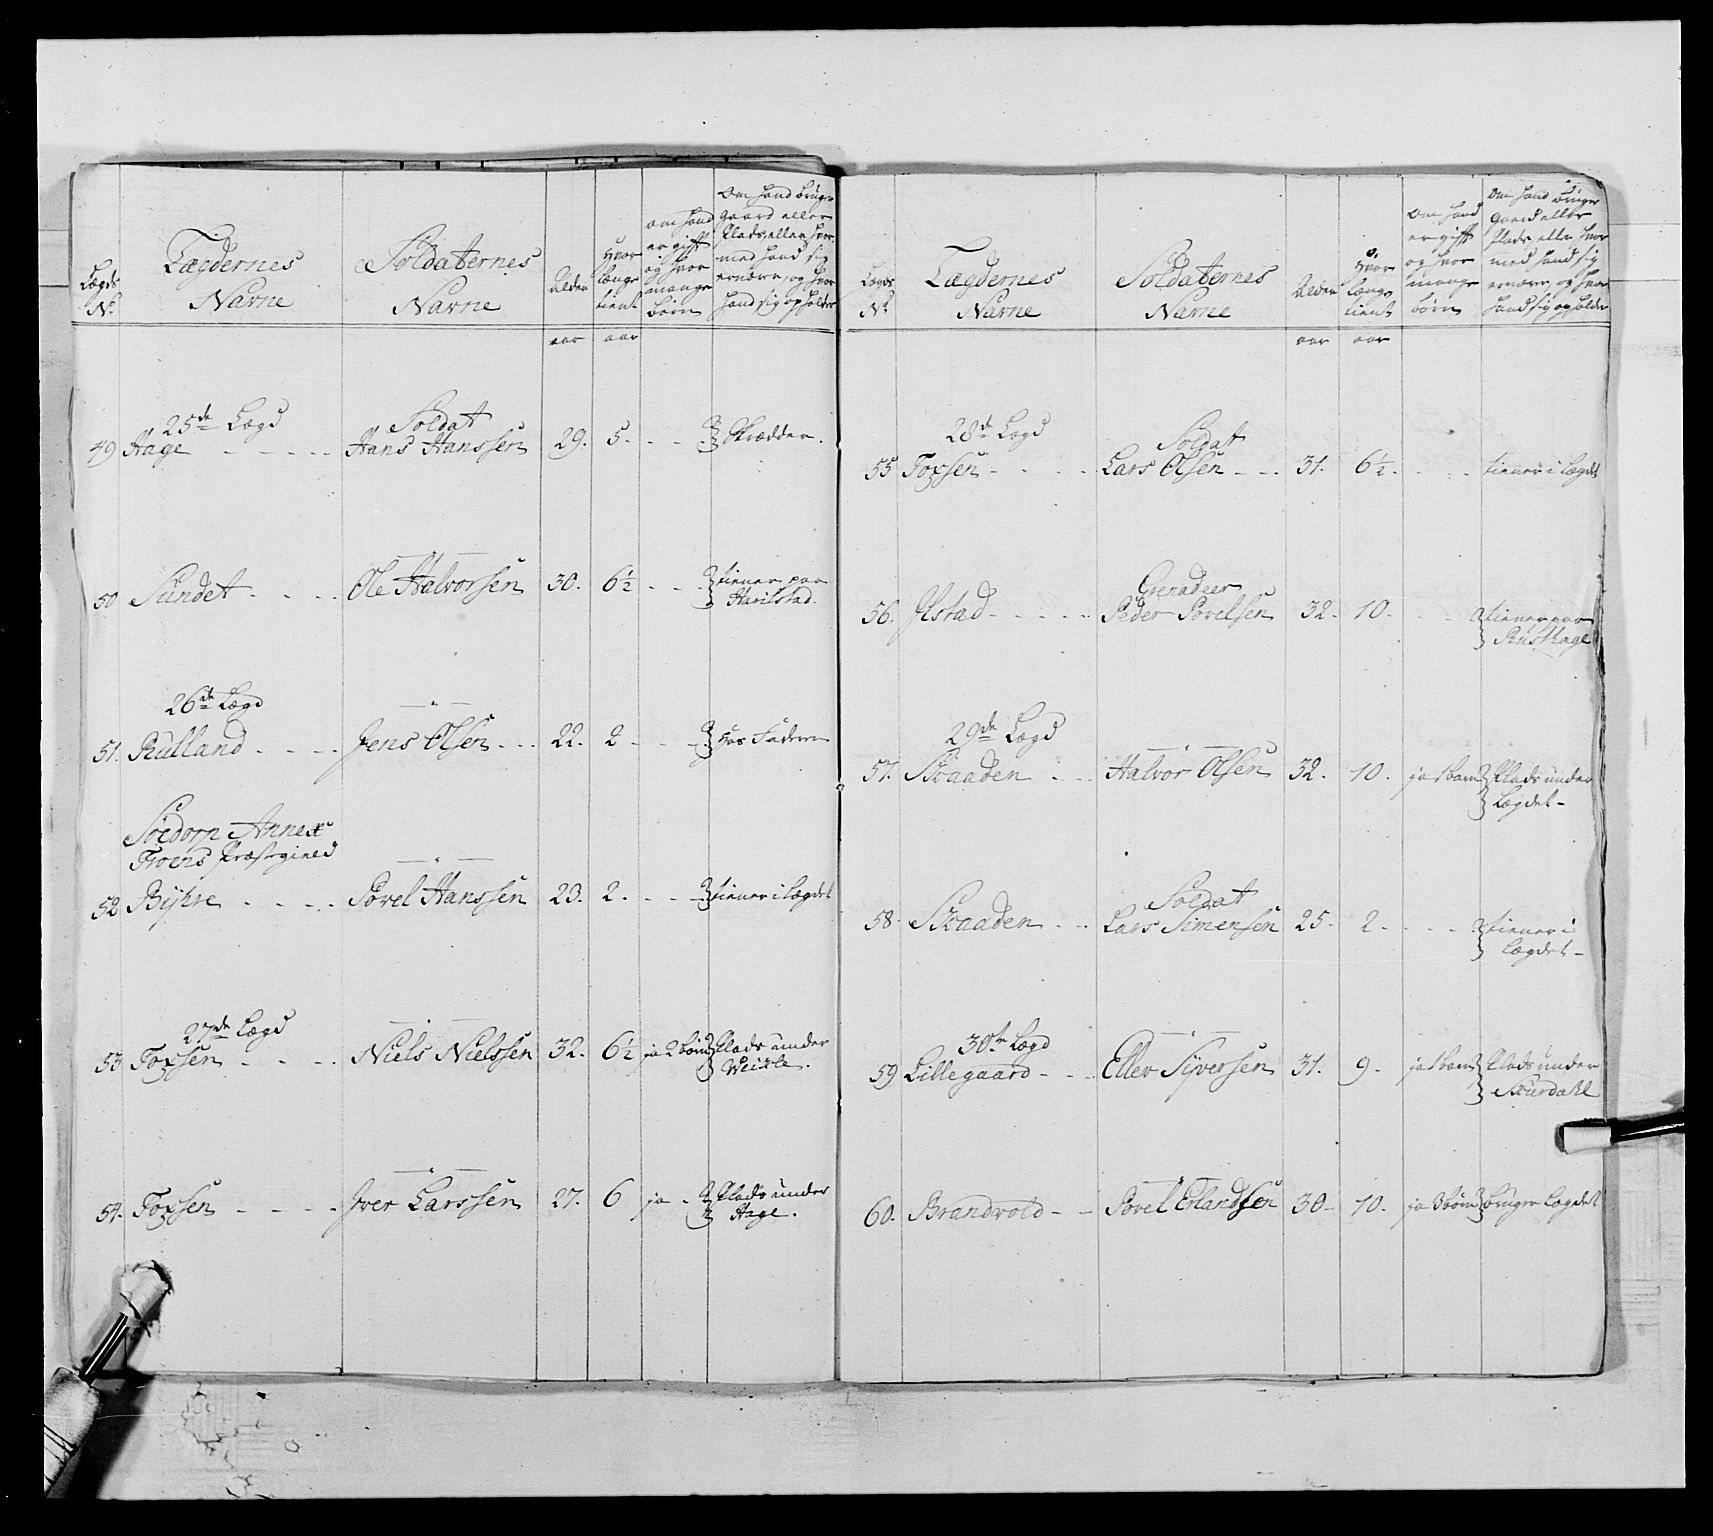 Lægds No
Lægdernes Navne
Soldaternes Navne
Alder
Hvor længe tient
om hand er gift og hvor mange börn
Om hand bruger Gaard eller Plads, eller hvor med hand sig ernære, og hvor hand sig opholder
aar aar
25de Lægd Soldat
49 Hage - - - - - Hans Hanssen 29. 5. - - Skrædder.
50 Sundet - - - - Ole Halvorsen 30. 6½ - - - tiener paa
Harilstad.
26de Lægd
51. Rulland - - - - Jens Olsen - - - 22. 2 - - - - Hos Faderen
Soedorp Annex
Froens Præstegield
52 Byhre - - - - Povel Hanssen 23. 2. - - - tiener i Lægdet
27de Lægd
53 Foxsen - - - - Niels Nielssen 32. 6½ ja 2 börn Plads under
Weikle.
54. Foxsen - - - - Iver Larssen 27. 6 ja - Plads under
Hage.
Lægds No
Lægdernes Navne
Soldaternes Navne
Alder
Hvor længe tient
Om hand er gift og hvor mange börn
Om hand bruger Gaard eller Plads eller hvor med hand sig ernære, og hvor hand sig opholder
aar aar
28de Lægd Soldat
55 Foxsen - - - - Lars Olsen - - - 31. 6½. - - - tiener i Lægdet
Grenadeer
56. Ilstad - - - - - Peder Povelsen 32. 10. - - tiener paa
Rusthage
29de Lægd
57. Skaaden - - - Halvor Olsen 32. 10. ja 1 barn Plads under
Lægdet -
Soldat
58. Skaaden - - - Lars Simensen 25. 2 - - - - tiener i
Lægdet -
30te Lægd
59 Lillegaard - - - Eller Syversen 31. 9. ja 1 barn Plads under
Skurdahl
60. Brandvold - - Povel Erlandsen 30 - 10. ja 3 börn bruger Lægdet